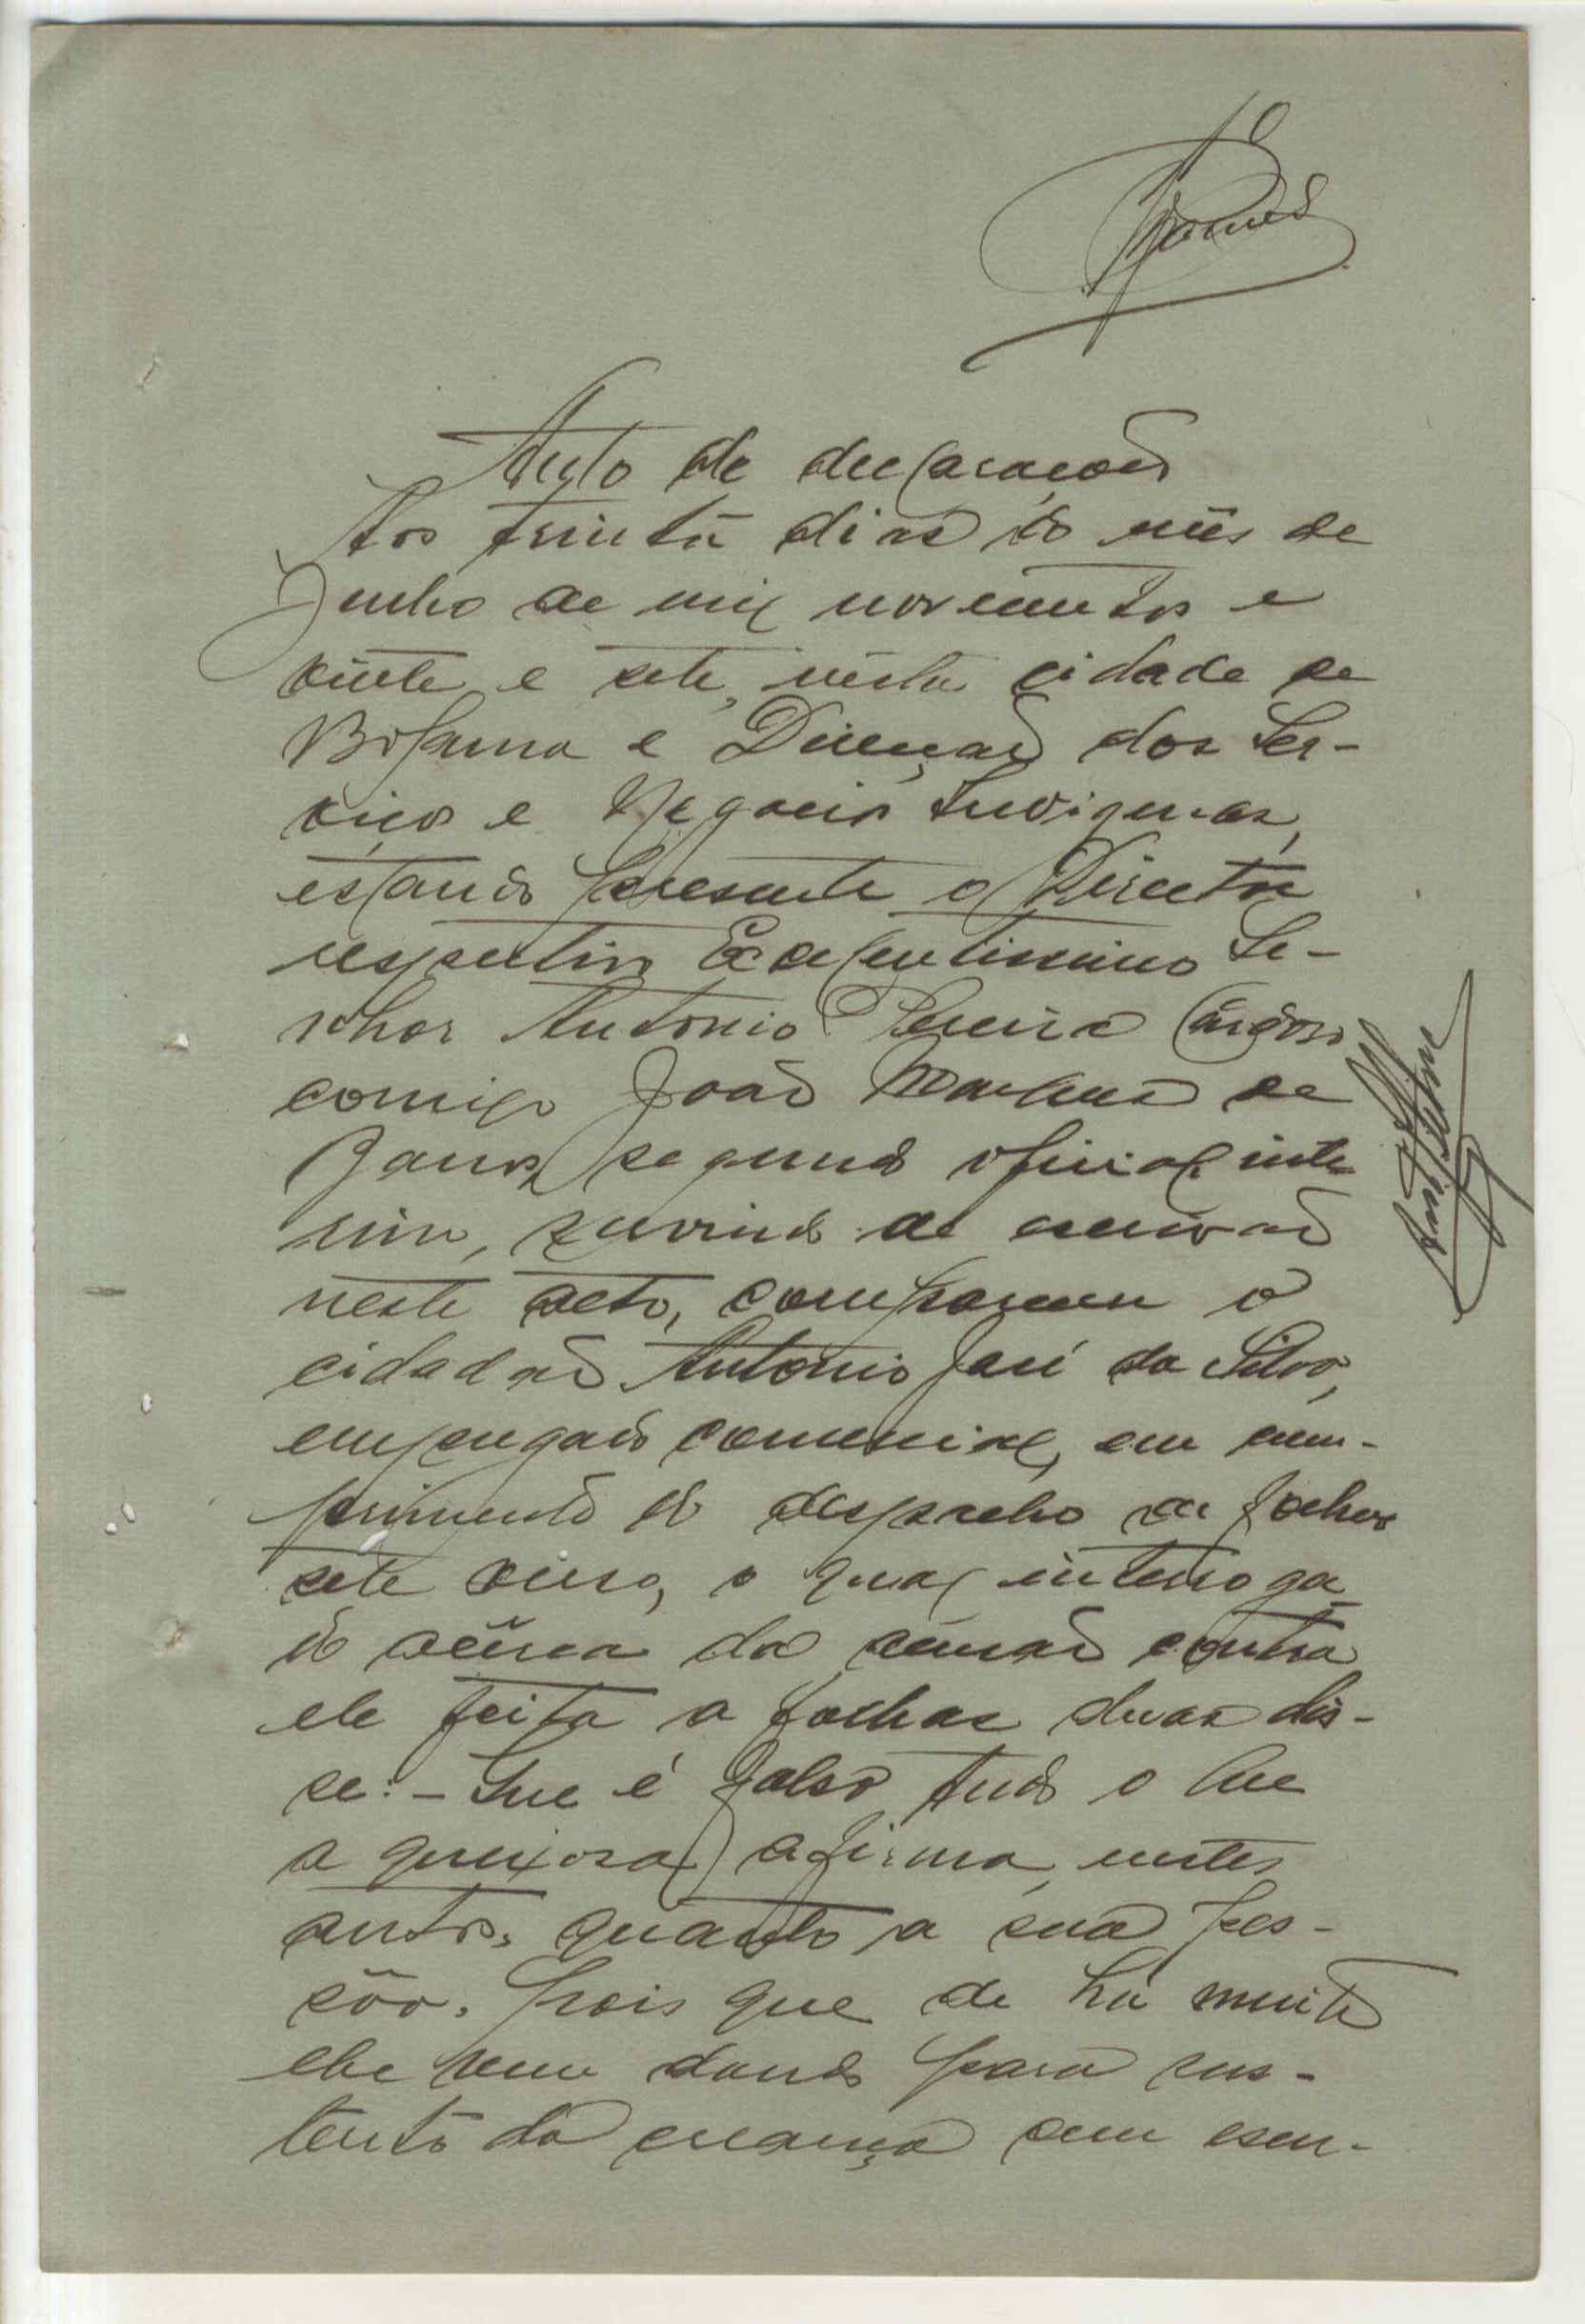 Auto de declarações
Aos trinta dias do mês de
Junho de mil novecentos e
vinte e sete, nesta cidade de
Bolama e Direcção dos Ser-
viços e Negocios Indigenas,
estando presente o Director
respectivo Excelentissimo Se-
nhor Antonio Pereira Cardoso
comigo João de
Barros segundo oficial inte
rino, servindo de escrivão
neste acto, compareceu o
cidadão Antonio José da Silva,
empregado comercial, em cum-
primento do despacho de folhas
sete verso, o qual interroga
do acêrca da acusação contra
ele feita a folhas duas dis-
se: - Que é falso tudo o que
a queixosa afirma, nestes
autos, quanto a sua pes-
sôa. pois que de há muito
ele vem dando para sus-
tento da creança cem escu-